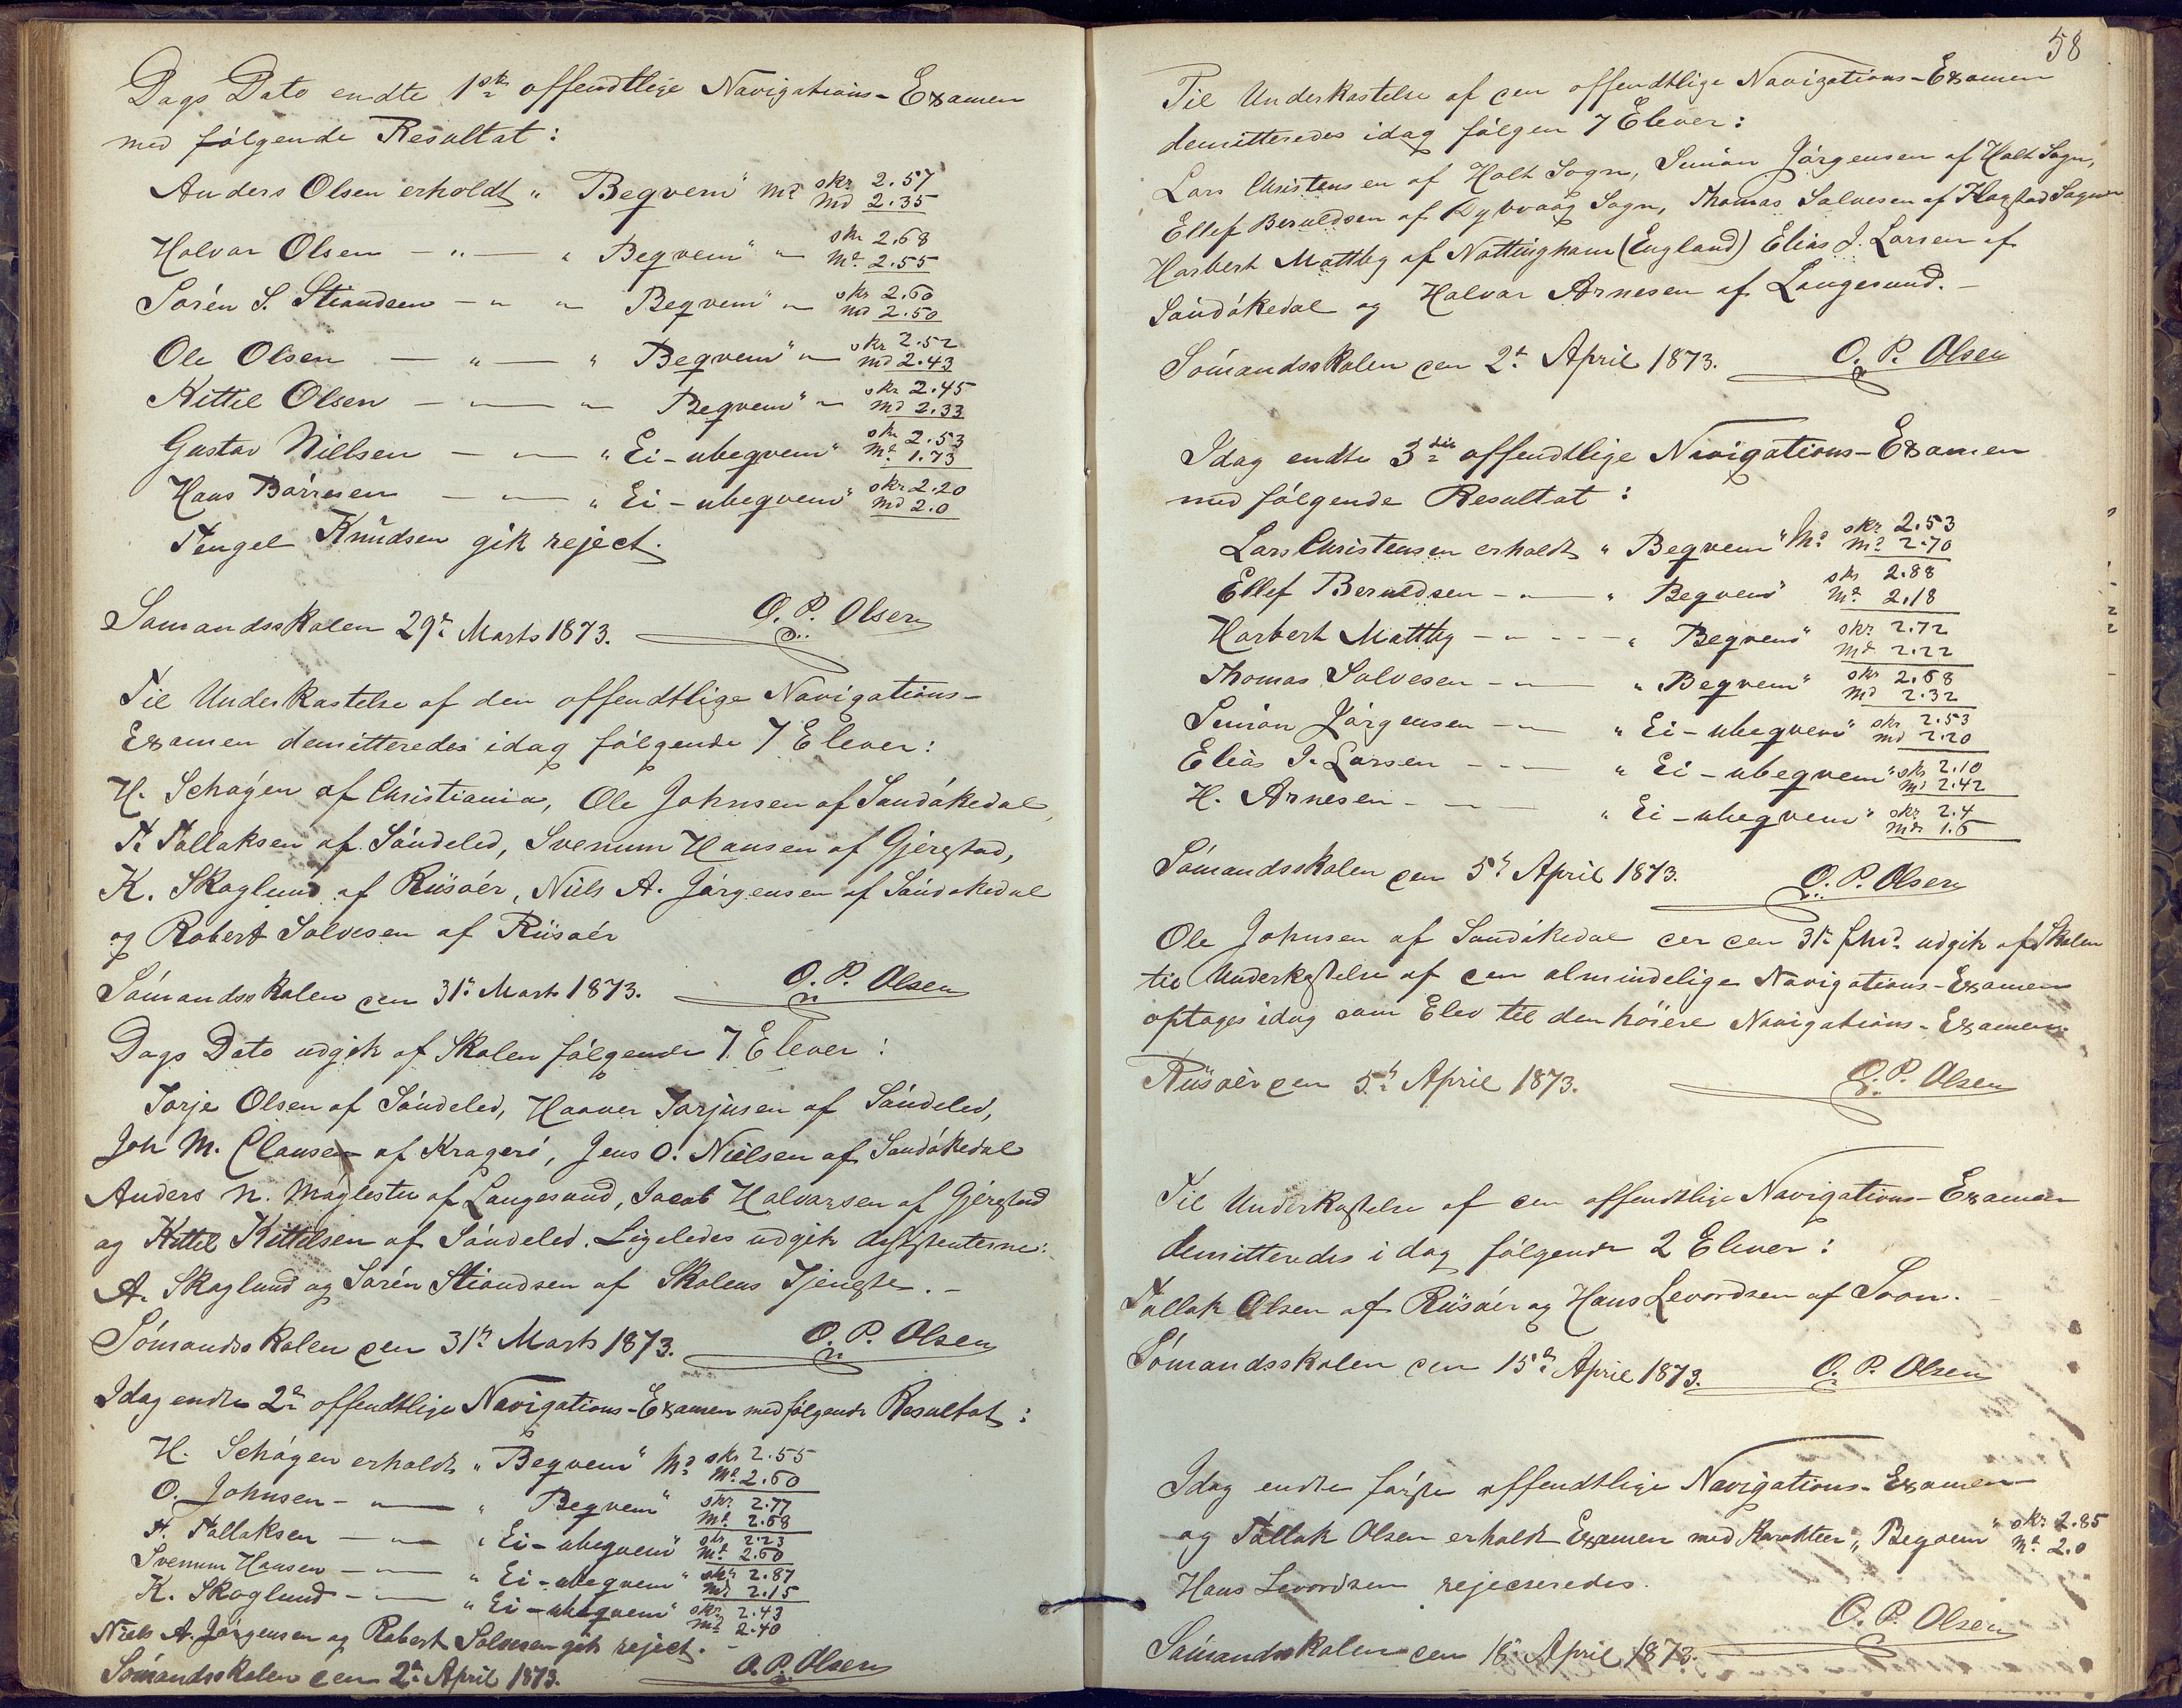 Dags Dato endte 1ste offendtlige Navigations-Examen
med følgende Resultat:
Anders Olsen erholdt „ Beqvem" Md skr 2.57
md 2.35
Halvor Olsen — „ — „ Beqvem" „ skr 2.68
Md 2.55
Sørén S. Stiandsen — „ „ Beqvem" „ skr 2.60
md 2.50
Ole Olsen — „ — „ Beqvem" „ skr 2.52
md 2.43
Kittil Olsen — „ — „ Beqvem" „ skr 2.45
md 2.33
Gustav Nillsen — „ — „ Ei-ubeqvem" skr 2.53
Md 1.73
Hans Börresen — „ — „ Ei-ubeqvem" skr 2.20
md 2.0
Tengel Knudsen gik reject.
Sømandsskolen 29de Marts 1873. O. P. Olsen
Til Underkastelse af den offendtlige Navigations-
Examen demitteredes idag følgende 7 Elever:
H. Schøyen af Christiania, Ole Johnsen af Sandøkedal,
T. Tallaksen af Søndeled, Svenum Hansen af Gjerestad,
K. Skoglund af Riisøer, Niels A. Jørgensen af Sandøkedal
og Robert Salvesen af Riisøér
Sømandsskolen den 31te Marts 1873. O. P. Olsen
Dags Dato udgik af Skolen følgende 7 Elever:
Torje Olsen af Søndeled, Haaver Torjusen af Søndeled,
Joh M. Clausen af Kragerö, Jens O. Nielsen af Sandøkedal
Anders N. Møglestu af Langesund, Jacob Halvorsen af Gjerestad
og Kittil Kittilsen af Søndeled. Ligeledes udgik Assistenterne:
A. Skoglund og Sørén Stiandsen af Skolens Tjeneste. -
Sømandsskolen den 31te Marts 1873. O. P. Olsen
Idag endte 2den offendtlige Navigations-Examen med følgende Resultat:
H. Schøyen erholdt „ Beqvem" Md skr 2.55
Md 2.60
O. Johnsen — „ — „ Beqvem" skr 2.77
Md 2.68
T. Tallaksen — „ — „ Ei-ubeqvem" skr 2.23
Md 2.60
Svenum Hansen — „ — „ Ei-ubeqvem" skr 2.87
Md 2.15
K. Skoglund — „ — „ Ei-ubeqvem" skr 2.43
Md 2.40
Niels A. Jørgensen og Robert Salvesen gik reject. -
Sømandsskolen den 2den April 1873. O. P. Olsen
58
Til Underkastelse af den offendtlige Navigations-Examen
demitteredes idag følgen 7 Elever:
Lars Christensen af Holt Sogn, Simon Jørgensen af Holt Sogn,
Ellef Beruldsen af Dybvaag Sogn, Thomas Salvesen af Flagstad Sogn
Harbert Mattby af Nottingham (England) Elias J. Larsen af
Sandøkedal og Halvor Arnesen af Langesund. -
Sømandsskolen den 2den April 1873. O. P. Olsen
Idag endte 3die offendtlige Navigations-Examen
med følgende Resultat:
Lars Christensen erholdt „ Beqvem" Md skr 2.53
md 2.70
Ellef Beruldsen — „ — „ Beqvem" skr 2.88
Md 2.18
Harbert Mattby — „ — „ Beqvem" skr 2.72
Md 2.22
Thomas Salvesen — „ — „ Beqvem" skr 2.68
Md 2.32
Simon Jørgensen — „ — „ Ei-ubeqvem" skr 2.53
md 2.20
Elias J. Larsen — „ — „ Ei-ubeqvem" skr 2.10
Md 2.42
H. Arnesen — „ — „ Ei-ubeqvem" skr 2.4
md 1.6
Sømandsskolen den 5te April 1873. O. P. Olsen
Ole Johnsen af Sandøkedal der den 31te f. Md. udgik af Skolen
til Underkastelse af den almindelige Navigations-Examen
optages idag som Elev til den höiere Navigations-Examen.
Riisøér den 5te April 1873. O. P. Olsen
Til Underkastelse af den offendtlige Navigations-Examen
demitteredes i dag følgende 2 Elever:
Tallak Olsen af Riisøér og Hans Levordsen af Soon.
Sømandsskolen den 15de April 1873. O. P. Olsen
Idag endte første offendtlige Navigations-Examen
og Tallak Olsen erholdt Examen med Karakteer „ Beqvem" skr 2.85
Md 2.0
Hans Levordsen rejecteredes.
Sømandsskolen den 18de April 1873. O. P. Olsen